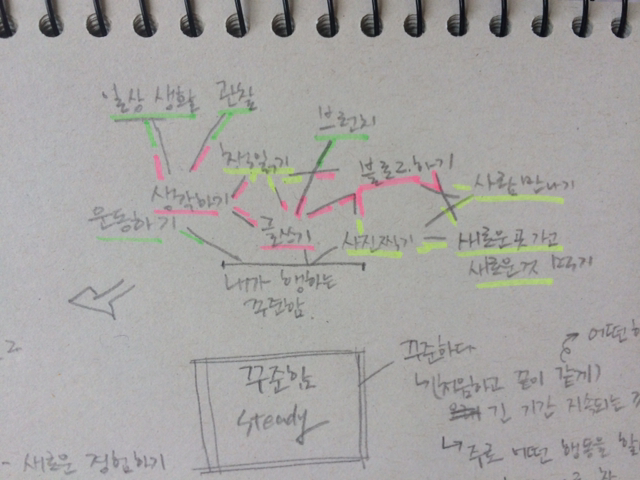 일상 생활
관찰
브런치
책읽기
블로그하기
사람만나기
생각하기
운동하기
글쓰기
사진찍기
새로운 곳 가고
새로운것
내가 행하는
꾸준함.
2
꾸준함
steady
꾸준하다
어떤
(처음하고 끝이 같게)
긴 기간 지속되는
주로 어떤 행동을
- 새로운 경험하기